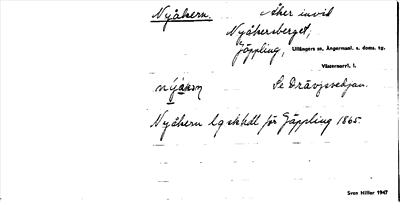 Nyåkern. Åker invid
Nyåkersberget,
Jäppling, Ullångers sn, Ångermanl. s. doms. tg.
Västernorrl. l.
nýåkɘṇ Se Drävjsvedjan.
Nyåkern lqskhdl för Jäppling 1865.
Sven Hiller 1947